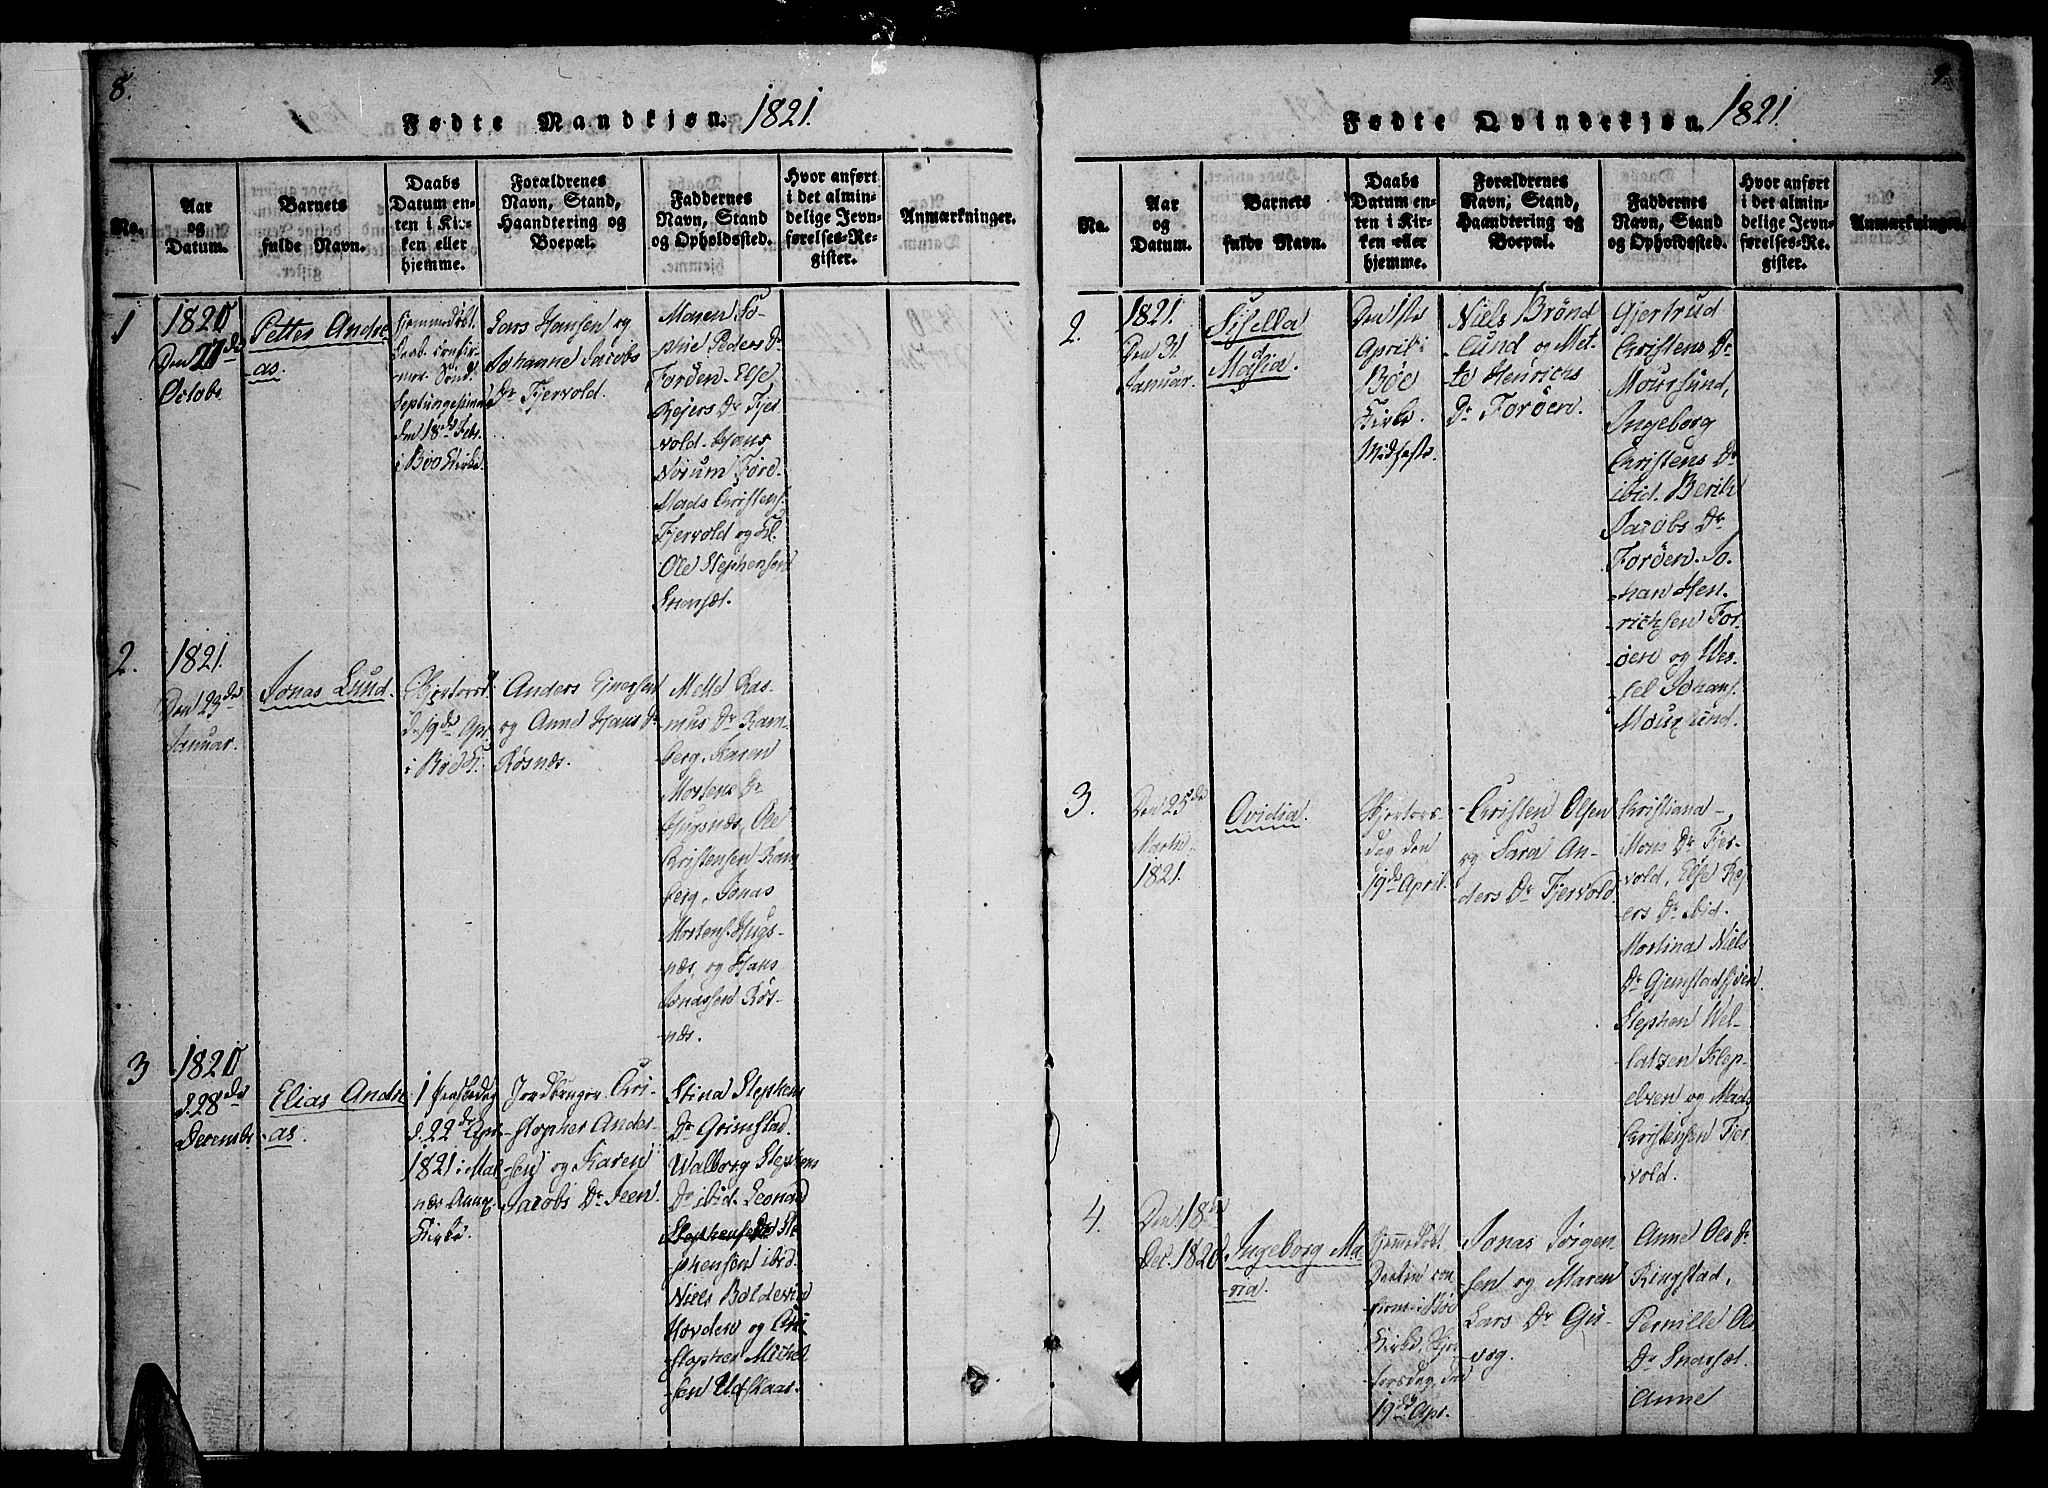 8.
Fødte Mandkjøn. 1821.
No.
Aar
og
Datum.
Barnets
fulde Navn.
Daabs
Datum en-
ten i Kir-
ken eller
hjemme.
Forældrenes
Navn, Stand,
Haandtering og
Boepæl.
Faddernes
Navn, Stand
og Opholdssted.
Hvor anført
i det almin-
delige Jevn-
førelses-Re-
gister.
Anmærkninger.
1
1820
Den 27de
Octobr
Petter Andre-
as.
Hjemmedøbt
Daab confir-
mer. Sønd.
Septuagesima
den 18de Febr.
i Bøe Kirke.
Lars Hansen og
Johanne Jacobs
Dr Fjervold.
Maren So-
phie Peders Dr
Forøen. Else
Rejers Dr Fjer
vold. Hans
Nørum Forø.
Mads Christens.
Fjervold og
Ole Stephensen
Snorsæt.
2.
1821.
Den 23de
Januar.
Jonas Lund.
Skjertorsd.
d. 19de Apr.
i Bøe K.
Anders Ejnersen
og Anne Hans Dr
Røsnæs.
Mette Ras-
mus Dr Ram-
berg, Karen
Mortens Dr
Hugsnæs, Ole
Christensen Ram
berg, Jonas
Mortens. Hugs-
næs, og Hans
Jonassen Røs-
næs.
3
1820
d. 28de
Decembr.
Elias Andre
as.
1 Paaskedag
d. 22de Apr.
1821 i Mal
næs Annex
Kirke.
Jordbruger Chri-
stopher Ander-
sen og Karen
Jacobs Dr Steen.
Stina Stephens
Dr Grimstad.
Walborg Stephens
Dr ibid. Leonard
Stephensen Ste
phensen ibid.
Niels Boldevin
Hovden og Chri
stopher Michel
sen Udskaar.
9.
Fødte Qvindekjøn. 1821.
No.
Aar
og
Datum.
Barnets
fulde Navn.
Daabs
Datum en-
ten i Kir-
ken eller
hjemme.
Forældrenes
Navn, Stand,
Haandtering og
Boepæl.
Faddernes
Navn, Stand
og Opholdssted.
Hvor anført
i det almin-
delige Jevn-
førelses-Re-
gister.
Anmærkninger.
2.
1821.
Den 31.
Januar.
Sisella
Maria.
Den 1ste
April i
Bøe
Kirke.
Midfaste.
Niels Brønd
lund og Met-
te Henrichs
Dr Forøen.
Gjertrud
Christens Dr
Mourslund,
Ingeborg
Christens Dr
ibid. Berith
Jacobs Dr
Forøen. Jo-
han Hen-
richsen For-
øen og Wes-
sel Johans.
Mourslund.
3.
Den 25de
Martii
1821.
Ovidia.
Skjertors
dag den
19de April.
Christen Olsen
og Sara An-
ders Dr Fjervold.
Christiana
Mons Dr Fjer-
vold, Else Rej
ers Dr ibid.
Martina Niels
Dr Gjemstadhøien.
Stephen Wel-
latzen Klep-
elzen og Mads
Christensen Fjer
vold.
4.
Den 18de
Dec. 1820.
Ingeborg Ma
ria.
Hjemmedøbt.
Daaben con-
firm. i Bøe
Kirke, Skjer
torsdag, den
19de Apr.
Jonas Jørgen-
sen og Maren
Lars Dr Gus-
vog.
Anne Oles Dr
Ringstad,
Pernille Ols
Dr Snarset.
Anne